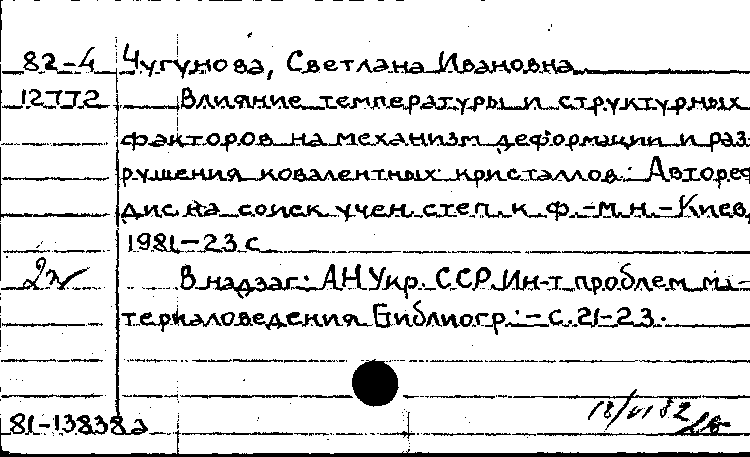 82-4 Чугунова, Светлана Ивановна
12772 Влияние температуры и структурных
факторов на механизм деформации и раз-
рушения ковалентных кристаллов: Автореф
дис на соиск учен. степ. к ф.-м.н.-Киев,
1981-23 с
2л В надзаг: АН Укр. ССР. Ин-т проблем ма-
териаловедения Библиогр.:-с.21-23.
81-13838а